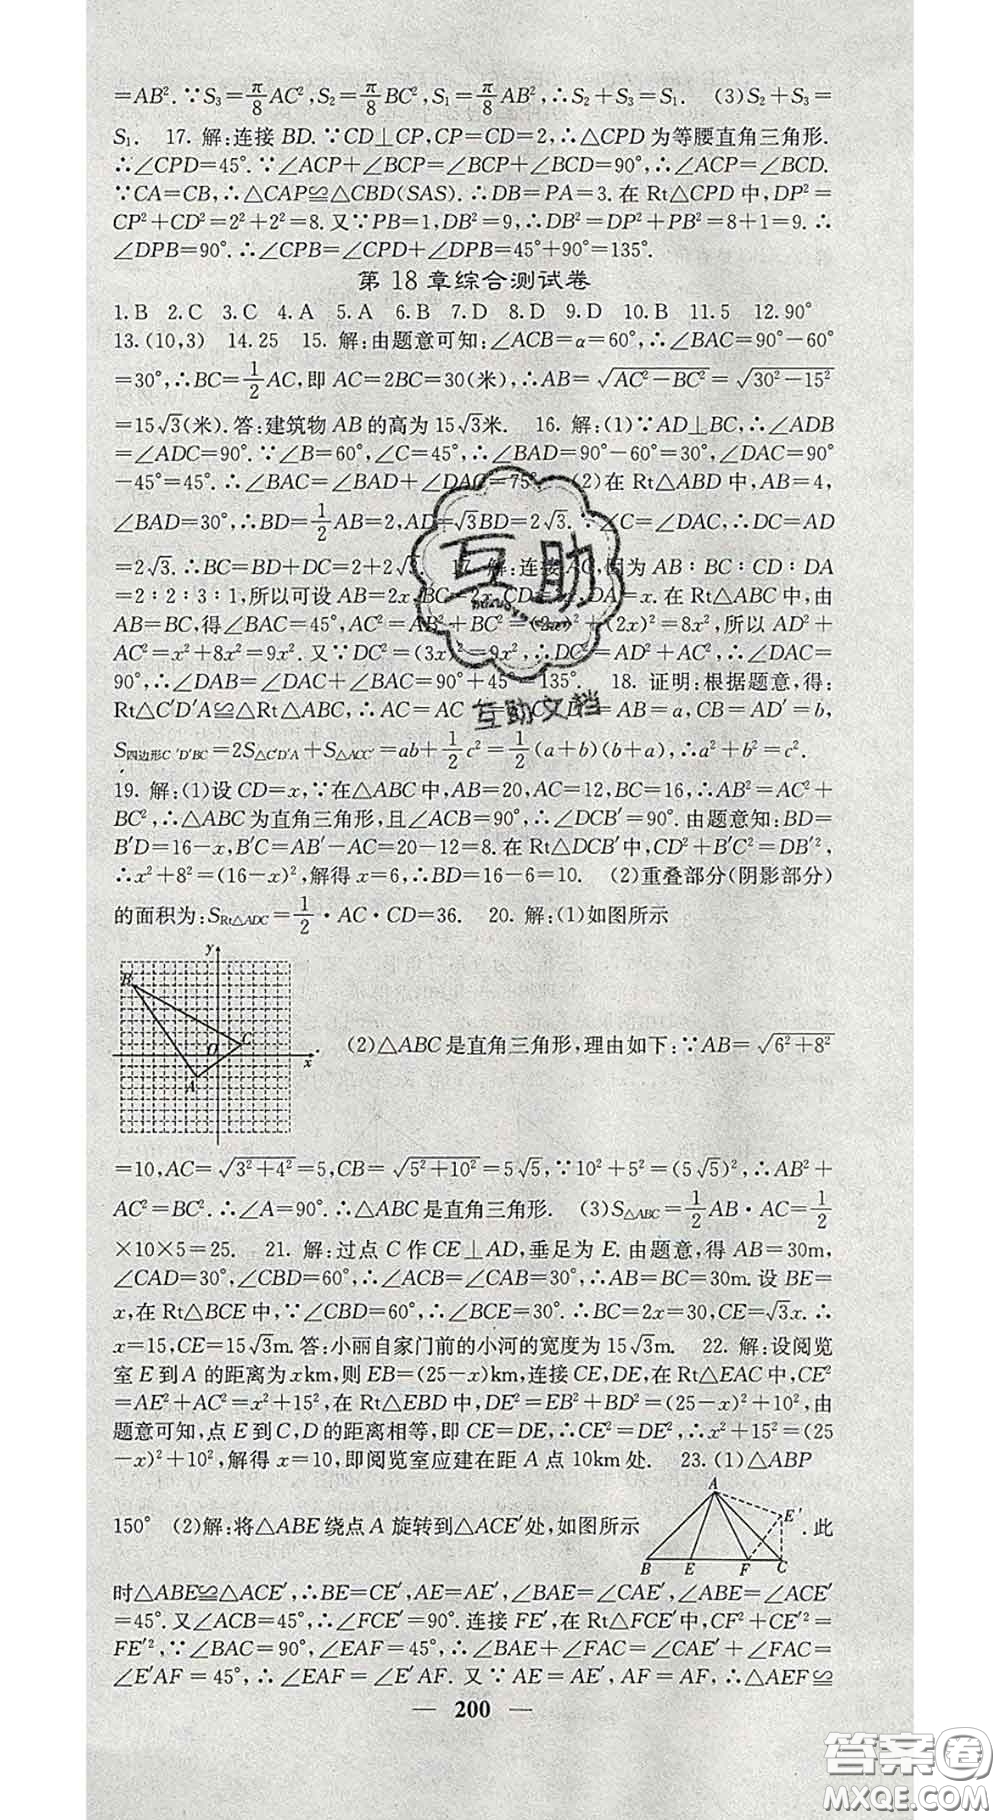 =AB². ∵S₃=π/8 AC²,S₂=π/8 BC²,S₁=π/8 AB²,∴S₂+S₃=S₁. (3)S₂+S₃=
S₁. 17. 解:连接 BD. ∵CD⊥CP,CP=CD=2,∴△CPD 为等腰直角三角形.
∴∠CPD=45°. ∵∠ACP+∠BCP=∠BCP+∠BCD=90°,∴∠ACP=∠BCD.
∵CA=CB,∴△CAP≌△CBD(SAS). ∴DB=PA=3. 在 Rt△CPD 中,DP²=
CP²+CD²=2²+2²=8. 又∵PB=1,DB²=9,∴DB²=DP²+PB²=8+1=9. ∴
∠DPB=90°. ∴∠CPB=∠CPD+∠DPB=45°+90°=135°.
第 18 章综合测试卷
1. B 2. C 3. C 4. A 5. A 6. B 7. D 8. D 9. D 10. B 11. 5 12. 90°
13. (10,3) 14. 25 15. 解:由题意可知:∠ACB=α=60°,∴∠BAC=90°-60°
=30°,∴BC=1/2 AC,即 AC=2BC=30(米),∴AB=√(AC²-BC²)=√(30²-15²)
=15√3(米). 答:建筑物 AB 的高为 15√3米. 16. 解:(1)∵AD⊥BC,∴∠ADB
=∠ADC=90°. ∵∠B=60°,∠C=45°,∴∠BAD=90°-60°=30°,∠DAC=90°
-45°=45°. ∴∠BAC=∠BAD+∠DAC=75° (2)在 Rt△ABD 中,AB=4,
∠BAD=30°,∴BD=1/2 AB=2,AD=√3BD=2√3. ∵∠C=∠DAC,∴DC=AD
=2√3. ∴BC=BD+DC=2+2√3. 17. 解:连接 AC,因为 AB∶BC∶CD∶DA
=2∶2∶3∶1,所以可设 AB=2x,BC=2x,CD DA=x. 在 Rt△ABC 中,由
AB=BC,得∠BAC=45°,AC²=AB²+BC²=(2x)²+(2x)²=8x²,所以 AD²+
AC²=x²+8x²=9x². 又∵DC²=(3x)²=9x²,∴DC²=AD²+AC²,∴∠DAC=
90°,∴∠DAB=∠DAC+∠BAC=90°+45°=135°. 18. 证明:根据题意,得:
Rt△C′D′A≌△Rt△ABC,∴AC=AC D′=AB=a,CB=AD′=b,
S四边形C′D′BC=2S△C′D′A+S△ACC′=ab+1/2 c²=1/2(a+b)(b+a),∴a²+b²=c².
19. 解:(1)设 CD=x,∵在△ABC 中,AB=20,AC=12,BC=16,∴AB²=AC²+
BC²,∴△ABC 为直角三角形,且∠ACB=90°,∴∠DCB′=90°. 由题意知:BD=
B′D=16-x,B′C=AB′-AC=20-12=8. 在 Rt△DCB′中,CD²+B′C²=DB′²,
∴x²+8²=(16-x)²,解得 x=6,∴BD=16-6=10. (2)重叠部分(阴影部分)
的面积为:S Rt△ADC=1/2·AC·CD=36. 20. 解:(1)如图所示
y B O C A x
. (2)△ABC 是直角三角形,理由如下:∵AB=√(6²+8²)
=10,AC=√(3²+4²)=5,CB=√(5²+10²)=5√5,∵10²+5²=(5√5)²,∴AB²+
AC²=BC². ∴∠A=90°. ∴△ABC 是直角三角形. (3)S△ABC=1/2 AB·AC=1/2
×10×5=25. 21. 解:过点 C 作 CE⊥AD,垂足为 E. 由题意,得 AB=30m,
∠CAD=30°,∠CBD=60°,∴∠ACB=∠CAB=30°,∴AB=BC=30m. 设 BE=
x,在 Rt△BCE 中,∵∠CBD=60°,∴∠BCE=30°. ∴BC=2x=30,CE=√3x. ∴
x=15,CE=15√3m. 答:小丽自家门前的小河的宽度为 15√3m. 22. 解:设阅览
室 E 到 A 的距离为 xkm,则 EB=(25-x)km,连接 CE,DE,在 Rt△EAC 中,CE²
=AE²+AC²=x²+15²,在 Rt△EBD 中,DE²=EB²+BD²=(25-x)²+10²,由
题意可知,点 E 到 C,D 的距离相等,即 CE=DE,∴CE²=DE²,∴x²+15²=(25
-x)²+10²,解得 x=10,即阅览室应建在距 A 点 10km 处. 23. (1)△ABP
150° (2)解:将△ABE 绕点 A 旋转到△ACE′处,如图所示 A E′ B E F C . 此
时△ABE≌△ACE′,∴BE=CE′,AE=AE′,∠BAE=∠CAE′,∠ABE=∠ACE′
=45°. 又∠ACB=45°,∴∠FCE′=90°. 连接 FE′,在 Rt△FCE′中,CF²+CE′²=
FE′²,∵∠BAC=90°,∠EAF=45°,∴∠BAE+∠FAC=∠CAE′+∠FAC=
∠E′AF=45°,∴∠EAF=∠E′AF. 又∵AE=AE′,AF=AF,∴△AEF≌
— 200 —
互助
互助文档
答案圈
MXQE.COM